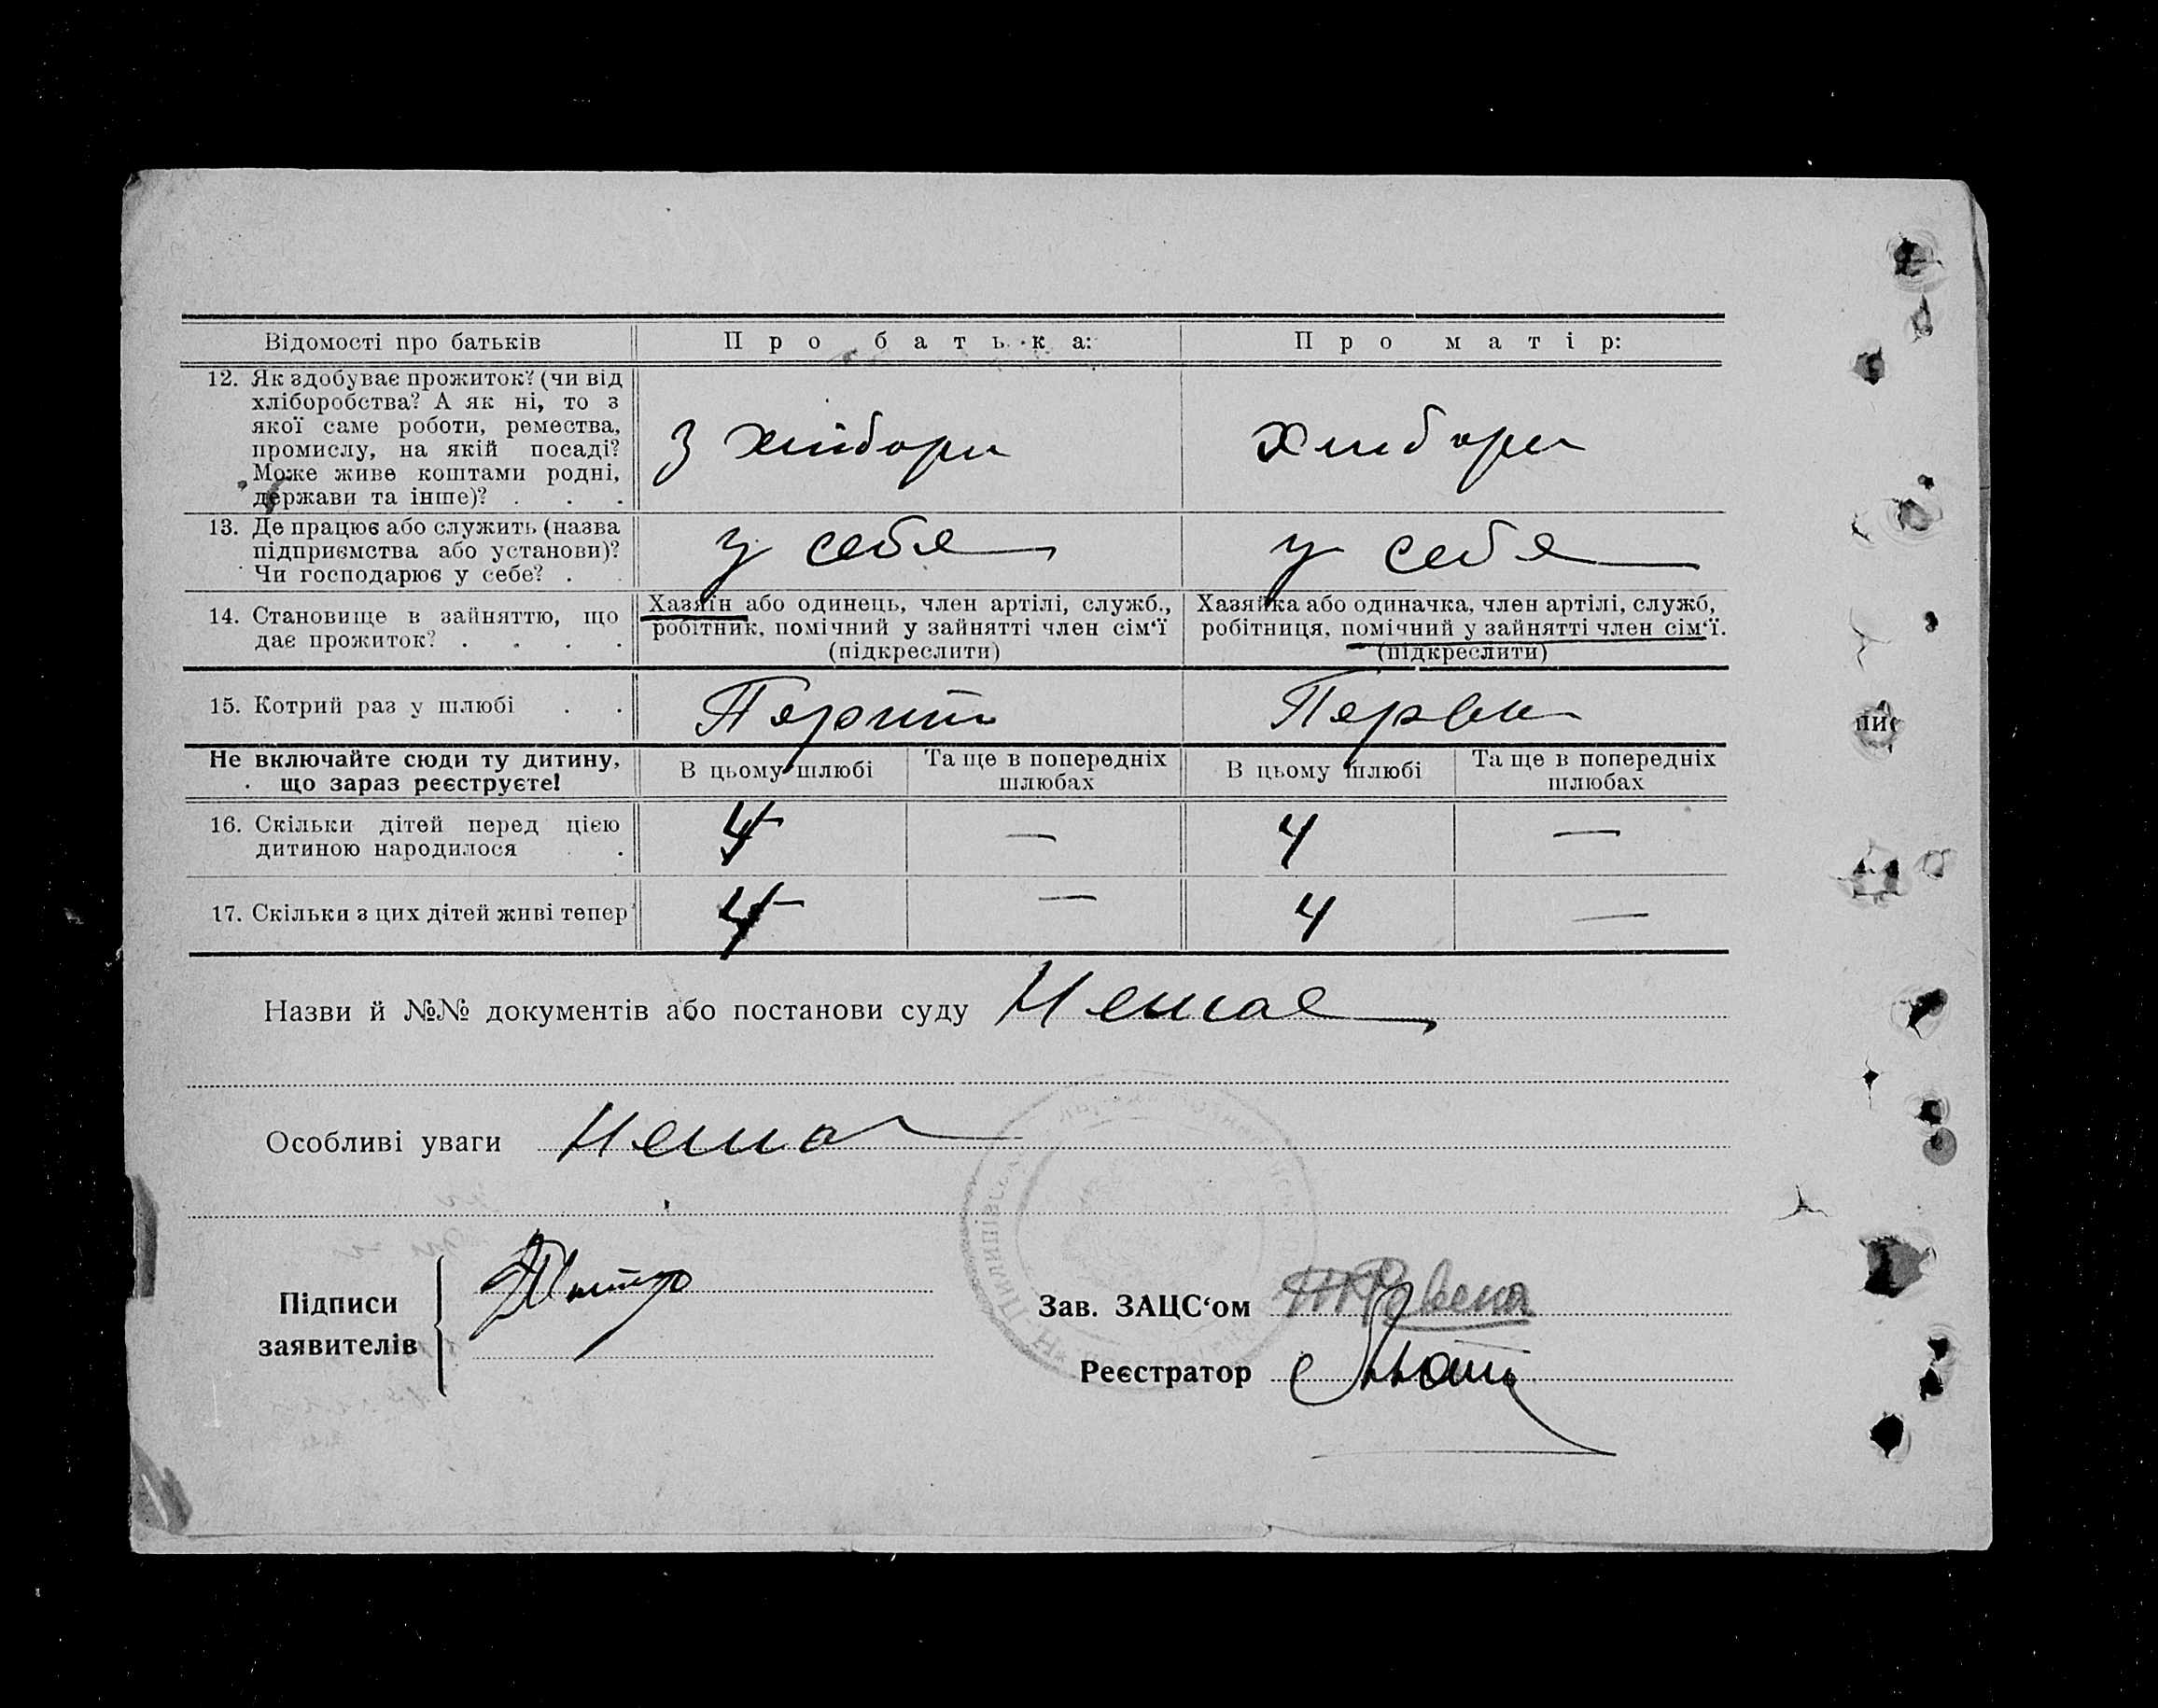 Відомості про батьків
Про батька:
Про матір:
12. Як здобуває прожиток? (чи від
хліборобства? А як ні, то з
якої саме роботи, ремества,
промислу, на якій посаді?
Може живе коштами родні,
держави та інше)? . . .
З хлібори
Хлибори
13. Де працює або служить (назва
підприємства або установи)?
Чи господарює у себе? .
у себя
у себя
14. Становище в зайняттю, що
дає прожиток? . . . .
Хазяїн або одинець, член артілі, служб.,
робітник, помічний у зайнятті член сім‘ї
(підкреслити)
Хазяйка або одиначка, член артілі, служб,
робітниця, помічний у зайнятті член сім‘ї.
(підкреслити)
15. Котрий раз у шлюбі . .
Перви
Не включайте сюди ту дитину,
що зараз реєструєте!
В цьому шлюбі
Та ще в попередніх
шлюбах
В цьому шлюбі
Та ще в попередніх
шлюбах
16. Скільки дітей перед цією
дитиною народилося . .
4
—
4
—
17. Скільки з цих дітей живі тепер
4
—
4
—
Назви й №№ документів або постанови суду Немає
Особливі уваги Нема
Підписи
заявителів
Зав. ЗАЦС‘ом
Реєстратор
пис